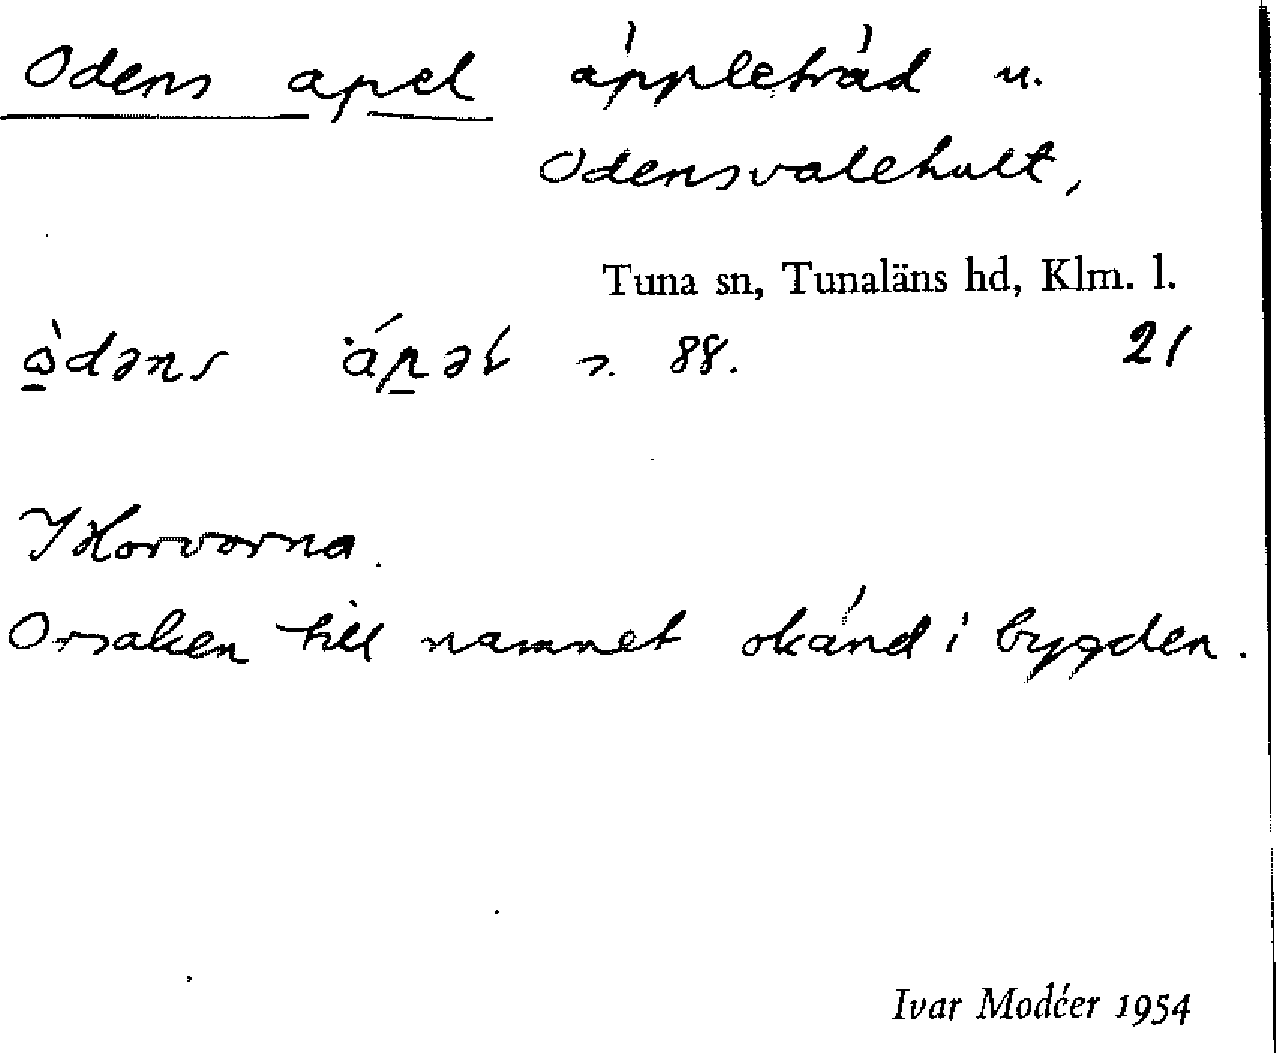 Odens apel äppleträd u.
Odensvalehult,
Tuna sn, Tunaläns hd, Klm. l.
s. 88. 21
I Horvorna.
Orsaken till namnet okänd i bygden.
Ivar Modéer 1954